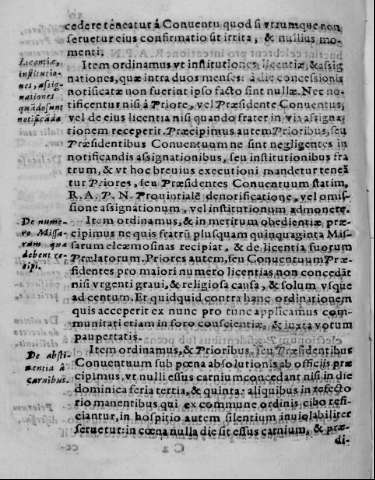 cedere teneatur à Conuentu quod si vtrumque non
seruetur eius confirmatio sit irrita, & nullius mo-
menti.
Licentiæ,
institutio-
nes, assig-
nationes
quãdo sunt
notificãdæ
Item ordinamus vt institutiones licentiæ, & assig
nationes, quæ intra duos menses à die concessionis
notificatæ non fuerint ipso facto sint nullæ. Nec no-
tificentur nisi à Priore, vel Præsidente Conuentus,
vel de eius licentia nisi quando frater in via assigna-
tionem receperit. Præcipimus autem Prioribus, seu
Præsidentibus Conuentuum ne sint negligentes in
notificandis assignationibus, seu institutionibus fra
trum, & vt hoc breuius executioni mandetur teneã
tur Priores, seu Præsidentes Conuentuum statim,
R. A. P. N. Prouintialẽ denotificatione, vel omis-
sione assignationum, vel institutionum admonere.
De nume-
ro Missa-
rum qua
debent re-
cipi.
Item ordinamus, & in meritum obedientiæ præ-
cipimus ne quis fratrũ plusquam quinquaginta Mis-
sarum eleæmosinas recipiat, & de licentia suorum
Prælatorum. Priores autem, seu Conuentuum Præ-
sidentes pro maiori numero licentias non concedãt
nisi vrgenti graui, & religiosa causa, & solum vsque
ad centum. Et quidquid contra hanc ordinationem
quis acceperit ex nunc pro tunc applicamus com-
munitati etiam in foro conscientiæ, & iuxta votum
paupertatis.
De absti-
nentia à
carnibus.
Item ordinamus, & Prioribus, seu Præsidentibus
Conuentuum sub pœna absolutionis ab officijs præ
cipimus, vt nulli essus carnium concedant nisi in die
dominica feria tertia, & quinta: aliquibus in refecto
rio manentibus qui ex commune ordinis cibo refi-
ciantur, in hospitio autem silentium inuiolabiliter
seruetur: in cœna nulla die sit essus carnium, & præ
di-